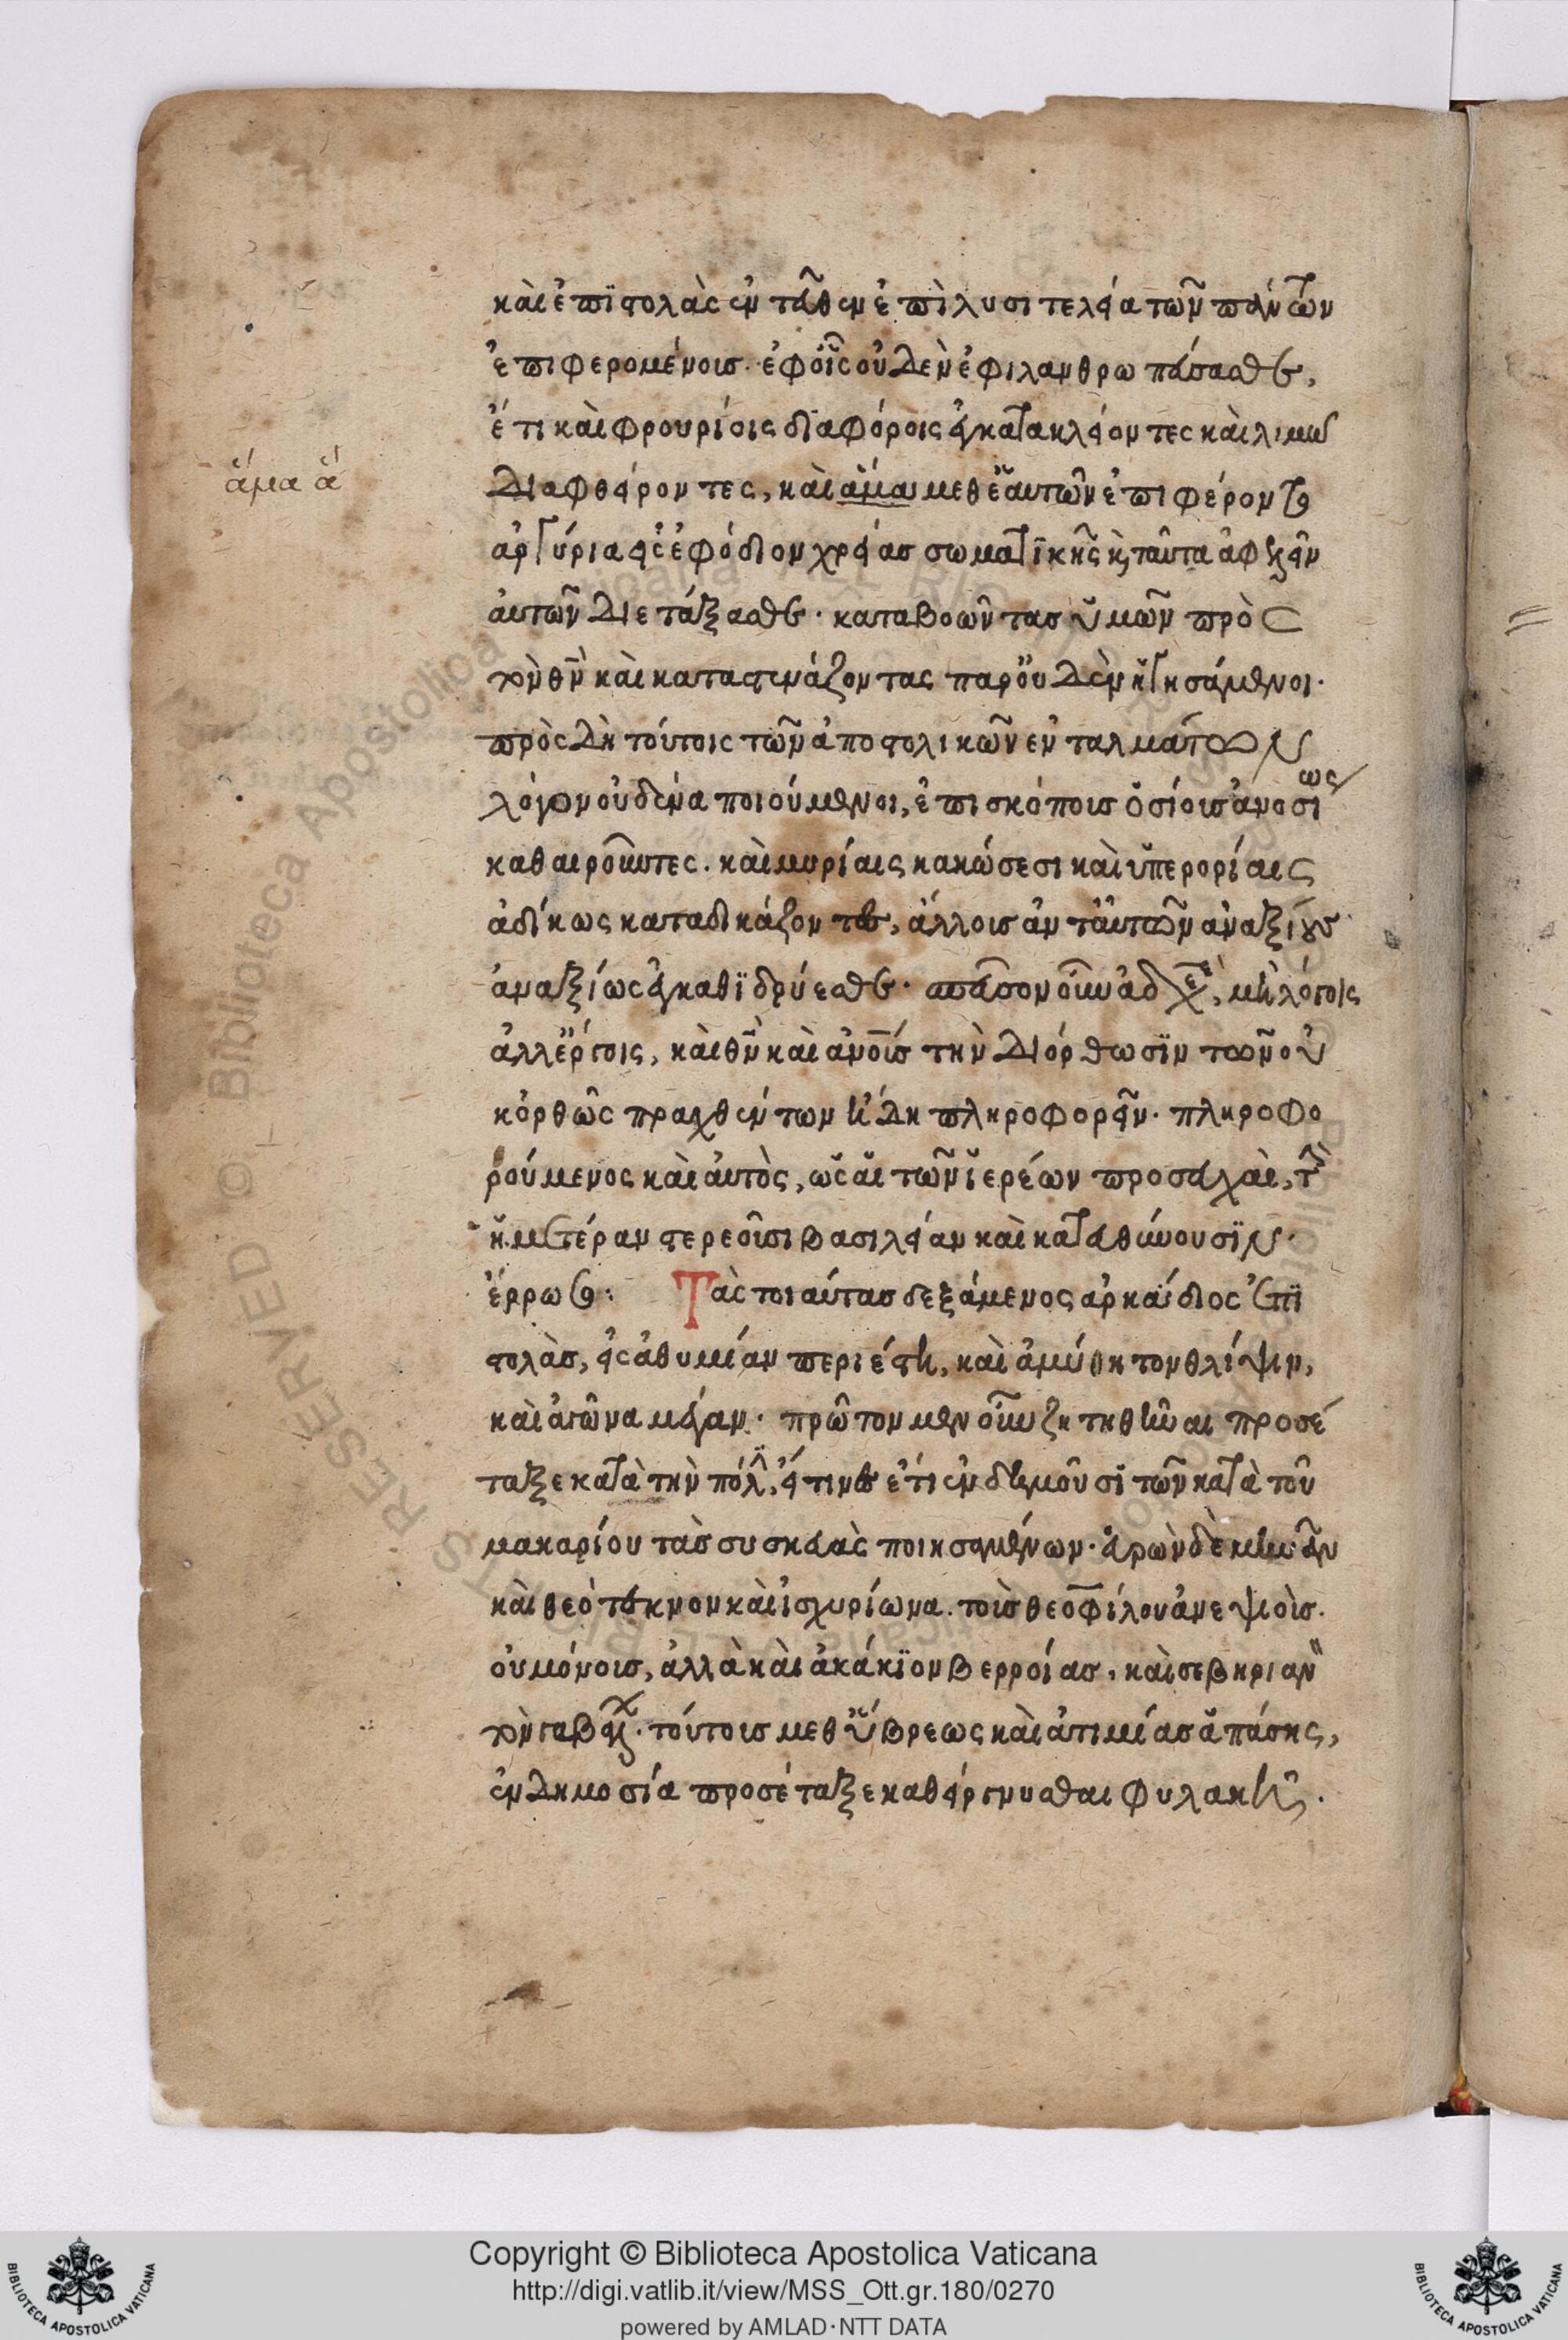 καὶ ἐπϊστολὰς ἐνταῦθεν ἐπὶ λυσιτελεία τῶν πάντων
ἐπιφερομένοισ· ἐφοῖς οὐδεν ἐφιλανθρωπεύσασθε,
ἔτι καὶ φρουρίοις διαφόροις ἐγκατακλείοντες καὶ λιμῶ
ἅμα ἃ
διαφθείροντες, καὶ ἅμα μεθ ἑαυτῶν ἐπιφέρονται
ἀργύρια εἰς ἐφόδιον χρείασ σωματϊκῆς κ ταῦτα ἀφελεῖν
ἀυτῶν διετάξασθε· καταβοῶντασ ὑμῶν πρὸς
τὸν θν καὶ καταστενάζοντας παρ' οὐδὲν ἡγησάμενοι·
πρὸς δὴ τούτοις τῶν ἀποστολικῶν ενταλμάτων
λόγον οὐδένα ποιούμενοι, ἐπισκόποισ ὁσίοισ ἀνοσίως
καθαιροῦντες. καὶ μυρίαις κακώσεσι καὶ ὑπερορίαις
ἀδίκως καταδικάζοντες, ἄλλοισ ἀντ' ἀυτῶν ἀναξίουσ
ἀναξίως ἐγκαθϊδρύεσθε· σπεῦσον οὖν ἀδ χὲ, μὴ λόγοις
ἀλλ' ἔργοις, καὶ θν καὶ ἀνοις τὴν διόρθωσϊν τῶν οὐ
κ ὀρθῶς πραχθέντων ἤδη πληροφορεῖν· πληροφο
ρούμενος καὶ ἀυτὸς, ὡς αἱ τῶν ἱερέων προσευχαὶ, τὴν
ἡμετέραν στερεοῦσι βασιλείαν καὶ κατευθύνουσϊν·
ἔρρωσο: Τὰς τοιαύτασ δεξάμενος ἀρκάδιος ἐπϊ
στολὰσ, εἰς ἀθυμίαν περιέστη, καὶ ἀμύθητον θλίψιν,
καὶ ἀγῶνα μέγαν· πρῶτον μὲν οὖν ζητηθῆναι προσέ
ταξε κατὰ τὴν πόλϊν, εἴ τινες ἔτι ἐνδημοῦσϊ τῶν κατὰ τοῦ
μακαρίου τὰσ συσκευὰς ποιησαμένων· εὑρὼν δὲ
καὶ θεότεκνον καὶ ἰσχυρίωνα. τοὺσ θεοφίλου ἀνεψιοὺσ.
οὐ μόνουσ, ἀλλὰ καὶ ἀκάκϊον βερροίασ, καὶ σεβηριανὸν
τὸν γαβάλων· τούτουσ μεθ' ὕβρεως καὶ ἀτιμίασ ἁπάσης,
ἐν δημοσία προσέταξε καθείργνυσθαι φυλακῆ.
Copyright © Biblioteca Apostolica Vaticana
http://digi.vatlib.it/view/MSS_Ott.gr.180/0270
powered by AMLAD·NTT DATA